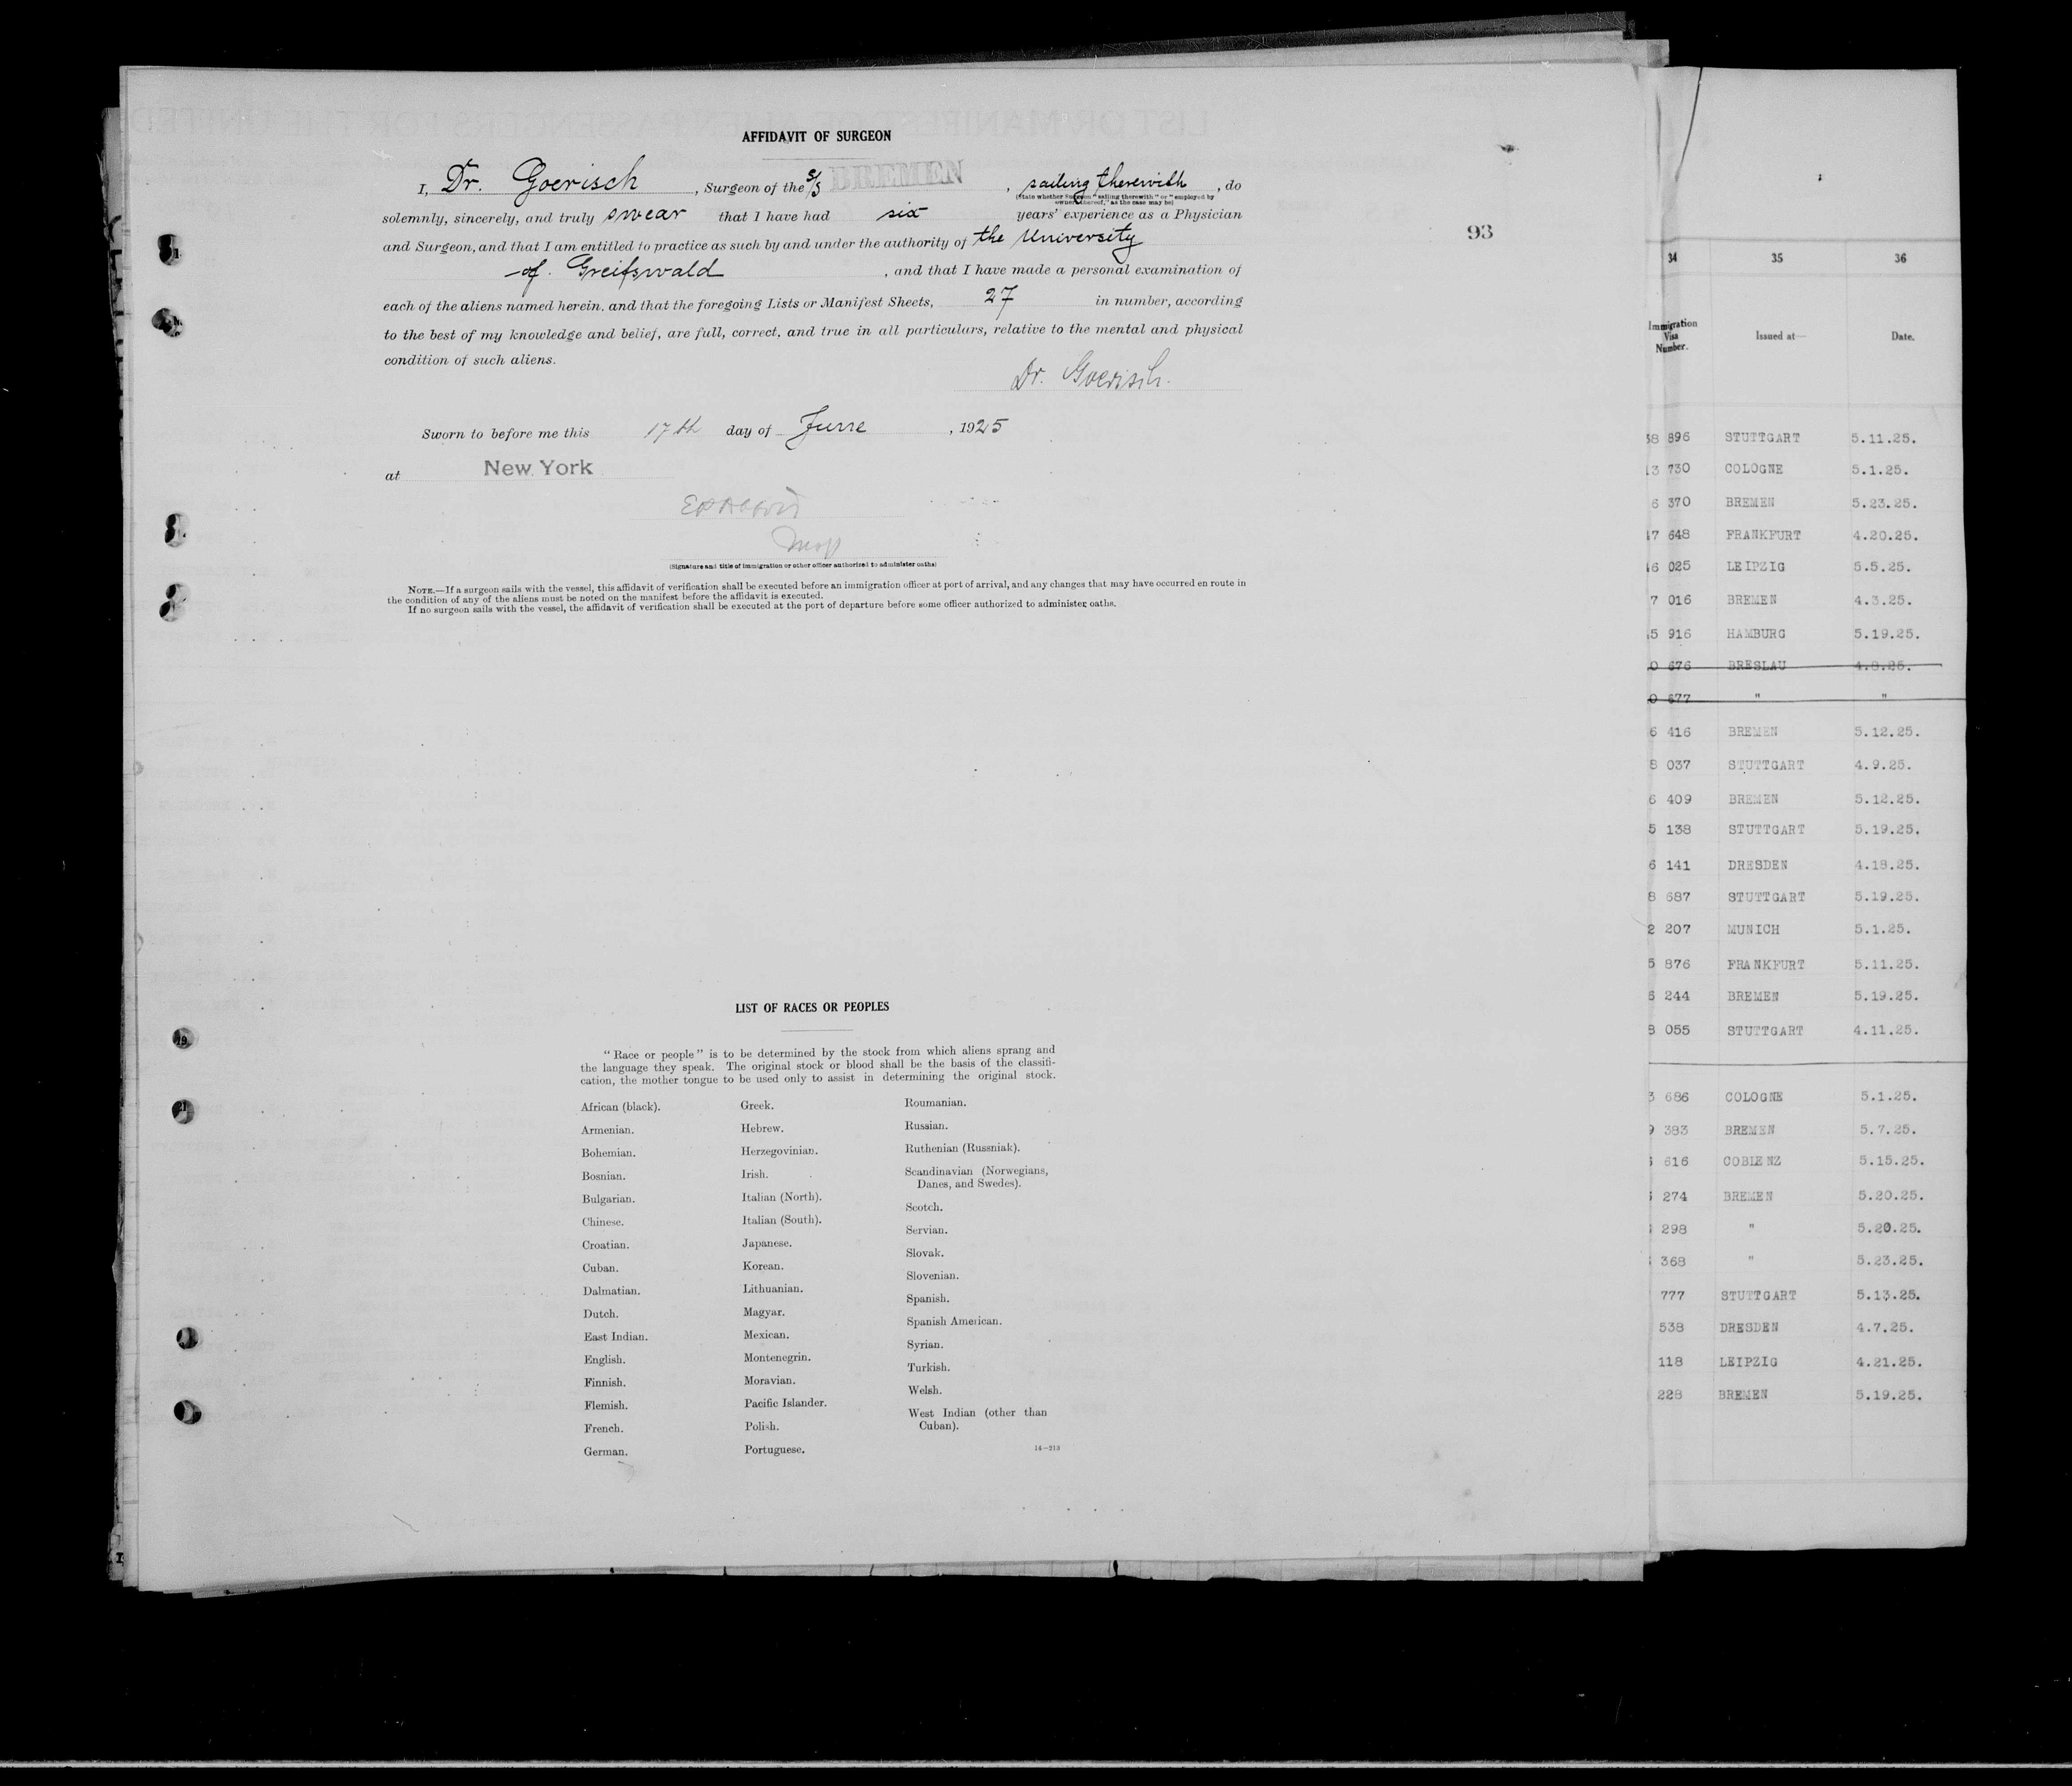 AFFIDAVIT OF SURGEON
I, Dr. Goerisch, Surgeon of the S/S BREMEN, sailing therewith, do
(State whether Surgeon "sailing therewith" or "employed by
owners thereof," as the case may be)
solemnly, sincerely, and truly swear that I have had six years' experience as a Physician
and Surgeon, and that I am entitled to practice as such by and under the authority of the University
of Greifswald, and that I have made a personal examination of
each of the aliens named herein, and that the foregoing Lists or Manifest Sheets, 27 in number, according
to the best of my knowledge and belief, are full, correct, and true in all particulars, relative to the mental and physical
condition of such aliens.
Dr. Goerisch.
Sworn to before me this 17th day of June, 1925
at New York
(Signature and title of immigration or other officer authorized to administer oaths)
NOTE.—If a surgeon sails with the vessel, this affidavit of verification shall be executed before an immigration officer at port of arrival, and any changes that may have occurred en route in
the condition of any of the aliens must be noted on the manifest before the affidavit is executed.
If no surgeon sails with the vessel, the affidavit of verification shall be executed at the port of departure before some officer authorized to administer oaths.
93
LIST OF RACES OR PEOPLES
"Race or people" is to be determined by the stock from which aliens sprang and
the language they speak. The original stock or blood shall be the basis of the classifi-
cation, the mother tongue to be used only to assist in determining the original stock.
African (black).
Armenian.
Bohemian.
Bosnian.
Bulgarian.
Chinese.
Croatian.
Cuban.
Dalmatian.
Dutch.
East Indian.
English.
Finnish.
Flemish.
French.
German.
Greek.
Hebrew.
Herzegovinian.
Irish.
Italian (North).
Italian (South).
Japanese.
Korean.
Lithuanian.
Magyar.
Mexican.
Montenegrin.
Moravian.
Pacific Islander.
Polish.
Portuguese.
Roumanian.
Russian.
Ruthenian (Russniak).
Scandinavian (Norwegians,
Danes, and Swedes).
Scotch.
Servian.
Slovak.
Slovenian.
Spanish.
Spanish American.
Syrian.
Turkish.
Welsh.
West Indian (other than
Cuban).
14—213
34 35 36
Immigration
Visa
Number.
Issued at—
Date.
896 STUTTGART 5.11.25.
730 COLOGNE 5.1.25.
6 370 BREMEN 5.23.25.
648 FRANKFURT 4.20.25.
025 LEIPZIG 5.5.25.
7 016 BREMEN 4.3.25.
916 HAMBURG 5.19.25.
0 676 BRESLAU 4.8.25.
0 677 " "
6 416 BREMEN 5.12.25.
8 037 STUTTGART 4.9.25.
6 409 BREMEN 5.12.25.
5 138 STUTTGART 5.19.25.
6 141 DRESDEN 4.18.25.
8 687 STUTTGART 5.19.25.
2 207 MUNICH 5.1.25.
5 876 FRANKFURT 5.11.25.
6 244 BREMEN 5.19.25.
8 055 STUTTGART 4.11.25.
686 COLOGNE 5.1.25.
383 BREMEN 5.7.25.
616 COBLENZ 5.15.25.
274 BREMEN 5.20.25.
298 " 5.20.25.
368 " 5.23.25.
777 STUTTGART 5.13.25.
538 DRESDEN 4.7.25.
118 LEIPZIG 4.21.25.
228 BREMEN 5.19.25.